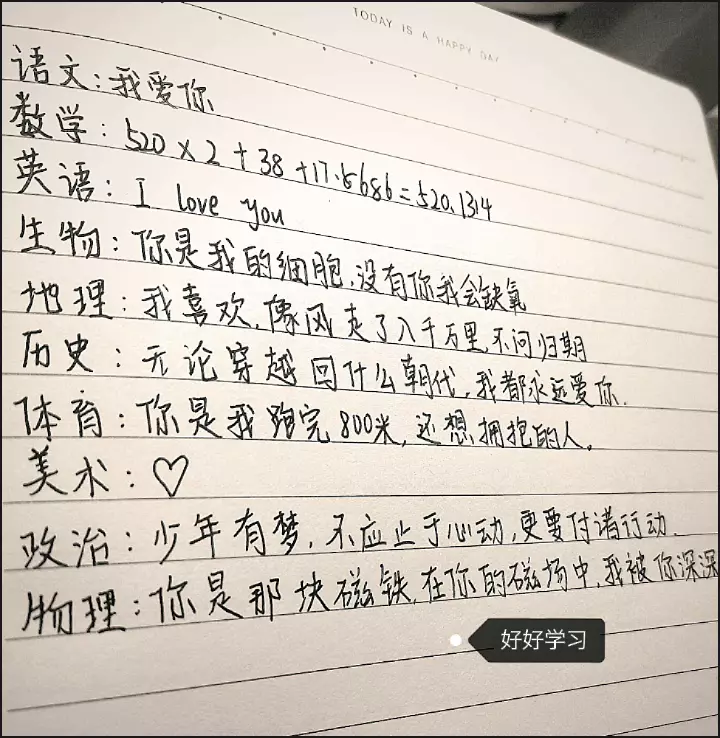 TODAY IS A HAPPY DAY
语文：我爱你
数学：520×2+38+17.5686=520.1314
英语：I love you
生物：你是我的细胞，没有你我会缺氧
地理：我喜欢，像风走了八千万里，不问归期
历史：无论穿越回什么朝代，我都永远爱你．
体育：你是我跑完800米，还想拥抱的人。
美术：♡
政治：少年有梦，不应止于心动，更要付诸行动．
物理：你是那块磁铁，在你的磁场中，我被你深深
好好学习